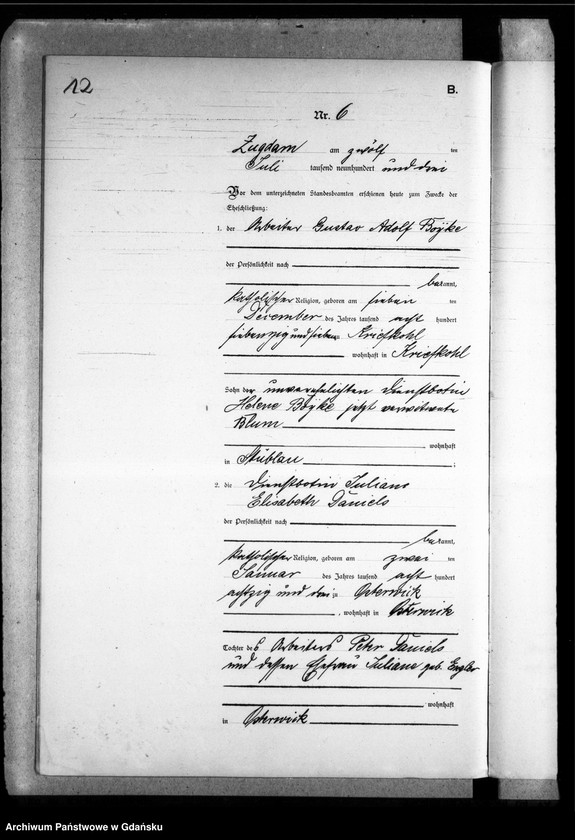 12
B.
Nr. 6
Zugdam am zwölf ten
Juli tausend neunhundert und drei
Vor dem unterzeichneten Standesbeamten erschienen heute zum Zwecke der
Eheschließung:
1. der Arbeiter Gustav Adolf Böÿke
der Persönlichkeit nach
bekannt,
katholischer Religion, geboren am sieben ten
December des Jahres tausend acht hundert
siebenzig und sieben zu Kriefkohl
wohnhaft in Kriefkohl
Sohn der unverehelichten Dienstbotin
Helene Böÿke jetzt verwitwete
Blum
wohnhaft
in Stüblau ;
2. die Dienstbotin Juliane
Elisabeth Daniels
der Persönlichkeit nach
bekannt,
katholischer Religion, geboren am zwei ten
Januar des Jahres tausend acht hundert
achtzig und drei zu Osterwick
, wohnhaft in Osterwick
Tochter des Arbeiters Peter Daniels
und dessen Ehefrau Juliane geb. Engler
wohnhaft
in Osterwick
Archiwum Państwowe w Gdańsku